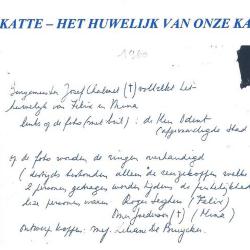 KATTE – HET HUWELIJK VAN ONZE KA
1960
Burgemeester Jozef Chalmet (†) voltrekt het
huwelijk van Felix en Mina
links op de foto (met bril) : de Heer Odent
(afgevaardigde Stad
Op de foto worden de ringen overhandigd
( destijds bestonden alleen de reuzekoppen welke
2 personen gedragen werden tijdens de feestelijkhed
deze personen waren Roger Seghers (Felix)
Omer (†) (Mina)
ontwerp koppen : mej. Liliane De Bruycker.